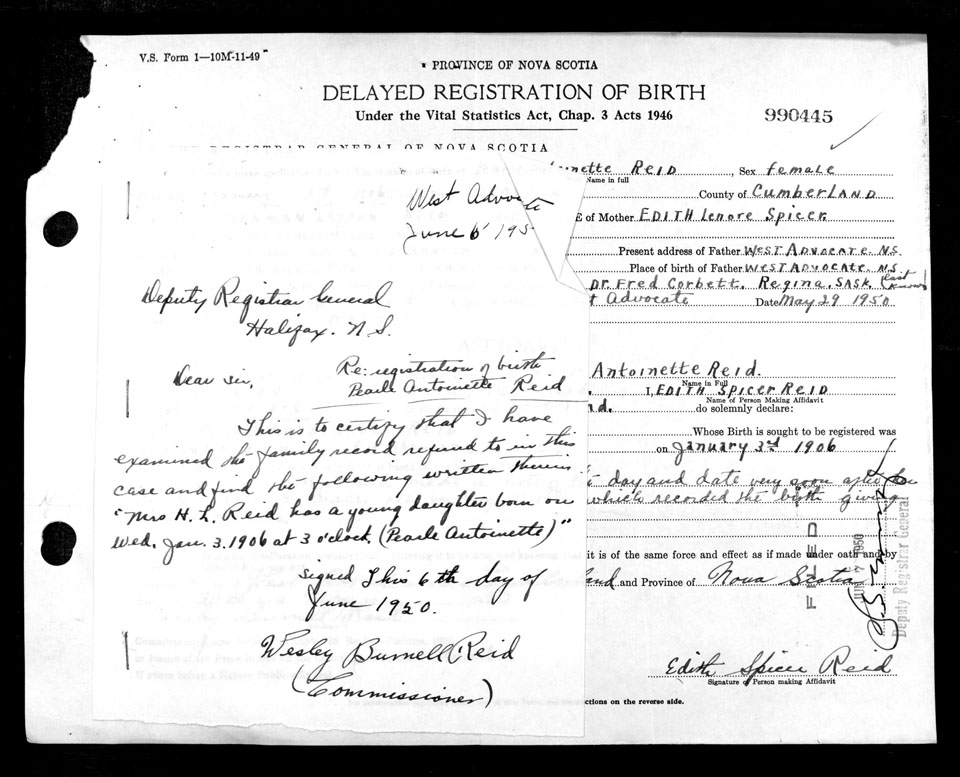 V.S. Form 1—10M-11-49
PROVINCE OF NOVA SCOTIA
DELAYED REGISTRATION OF BIRTH
Under the Vital Statistics Act, Chap. 3 Acts 1946
990445
REGISTRAR GENERAL OF NOVA SCOTIA
West Advocate
June 6 195
Deputy Registrar General
Halifax. N.S.
Dear Sir,
Re: registration of birth
Pearle Antoinette Reid
This is to certify that I have
examined the family record referred to in this
case and find the following written therein
"Mrs H. L. Reid has a young daughter born on
Wed. Jan. 3. 1906 at 3 o'clock. (Pearle Antoinette)"
Signed this 6th day of
June 1950.
Wesley Burnell Reid
(Commissioner)
inette REID, Sex female
Name in full
County of CUMBERLAND
E of Mother EDITH Lenore Spicer
Present address of Father WEST ADVOCATE N.S.
Place of birth of Father WEST ADVOCATE N.S.
Dr. Fred Corbett. Regina, SASK. (last known)
t Advocate Date May 29 1950
Antoinette Reid.
Name in Full
I, EDITH SPICER REID
Name of Person Making Affidavit
nd. do solemnly declare:
Whose Birth is sought to be registered was
on January 3rd 1906
day and date very soon after
which recorded the birth giving
it is of the same force and effect as if made under oath and by
and and Province of Nova Scotia
FILED
JUN 7 1950
Deputy Registrar General
Edith Spicer Reid
Signature of Person making Affidavit
ctions on the reverse side.